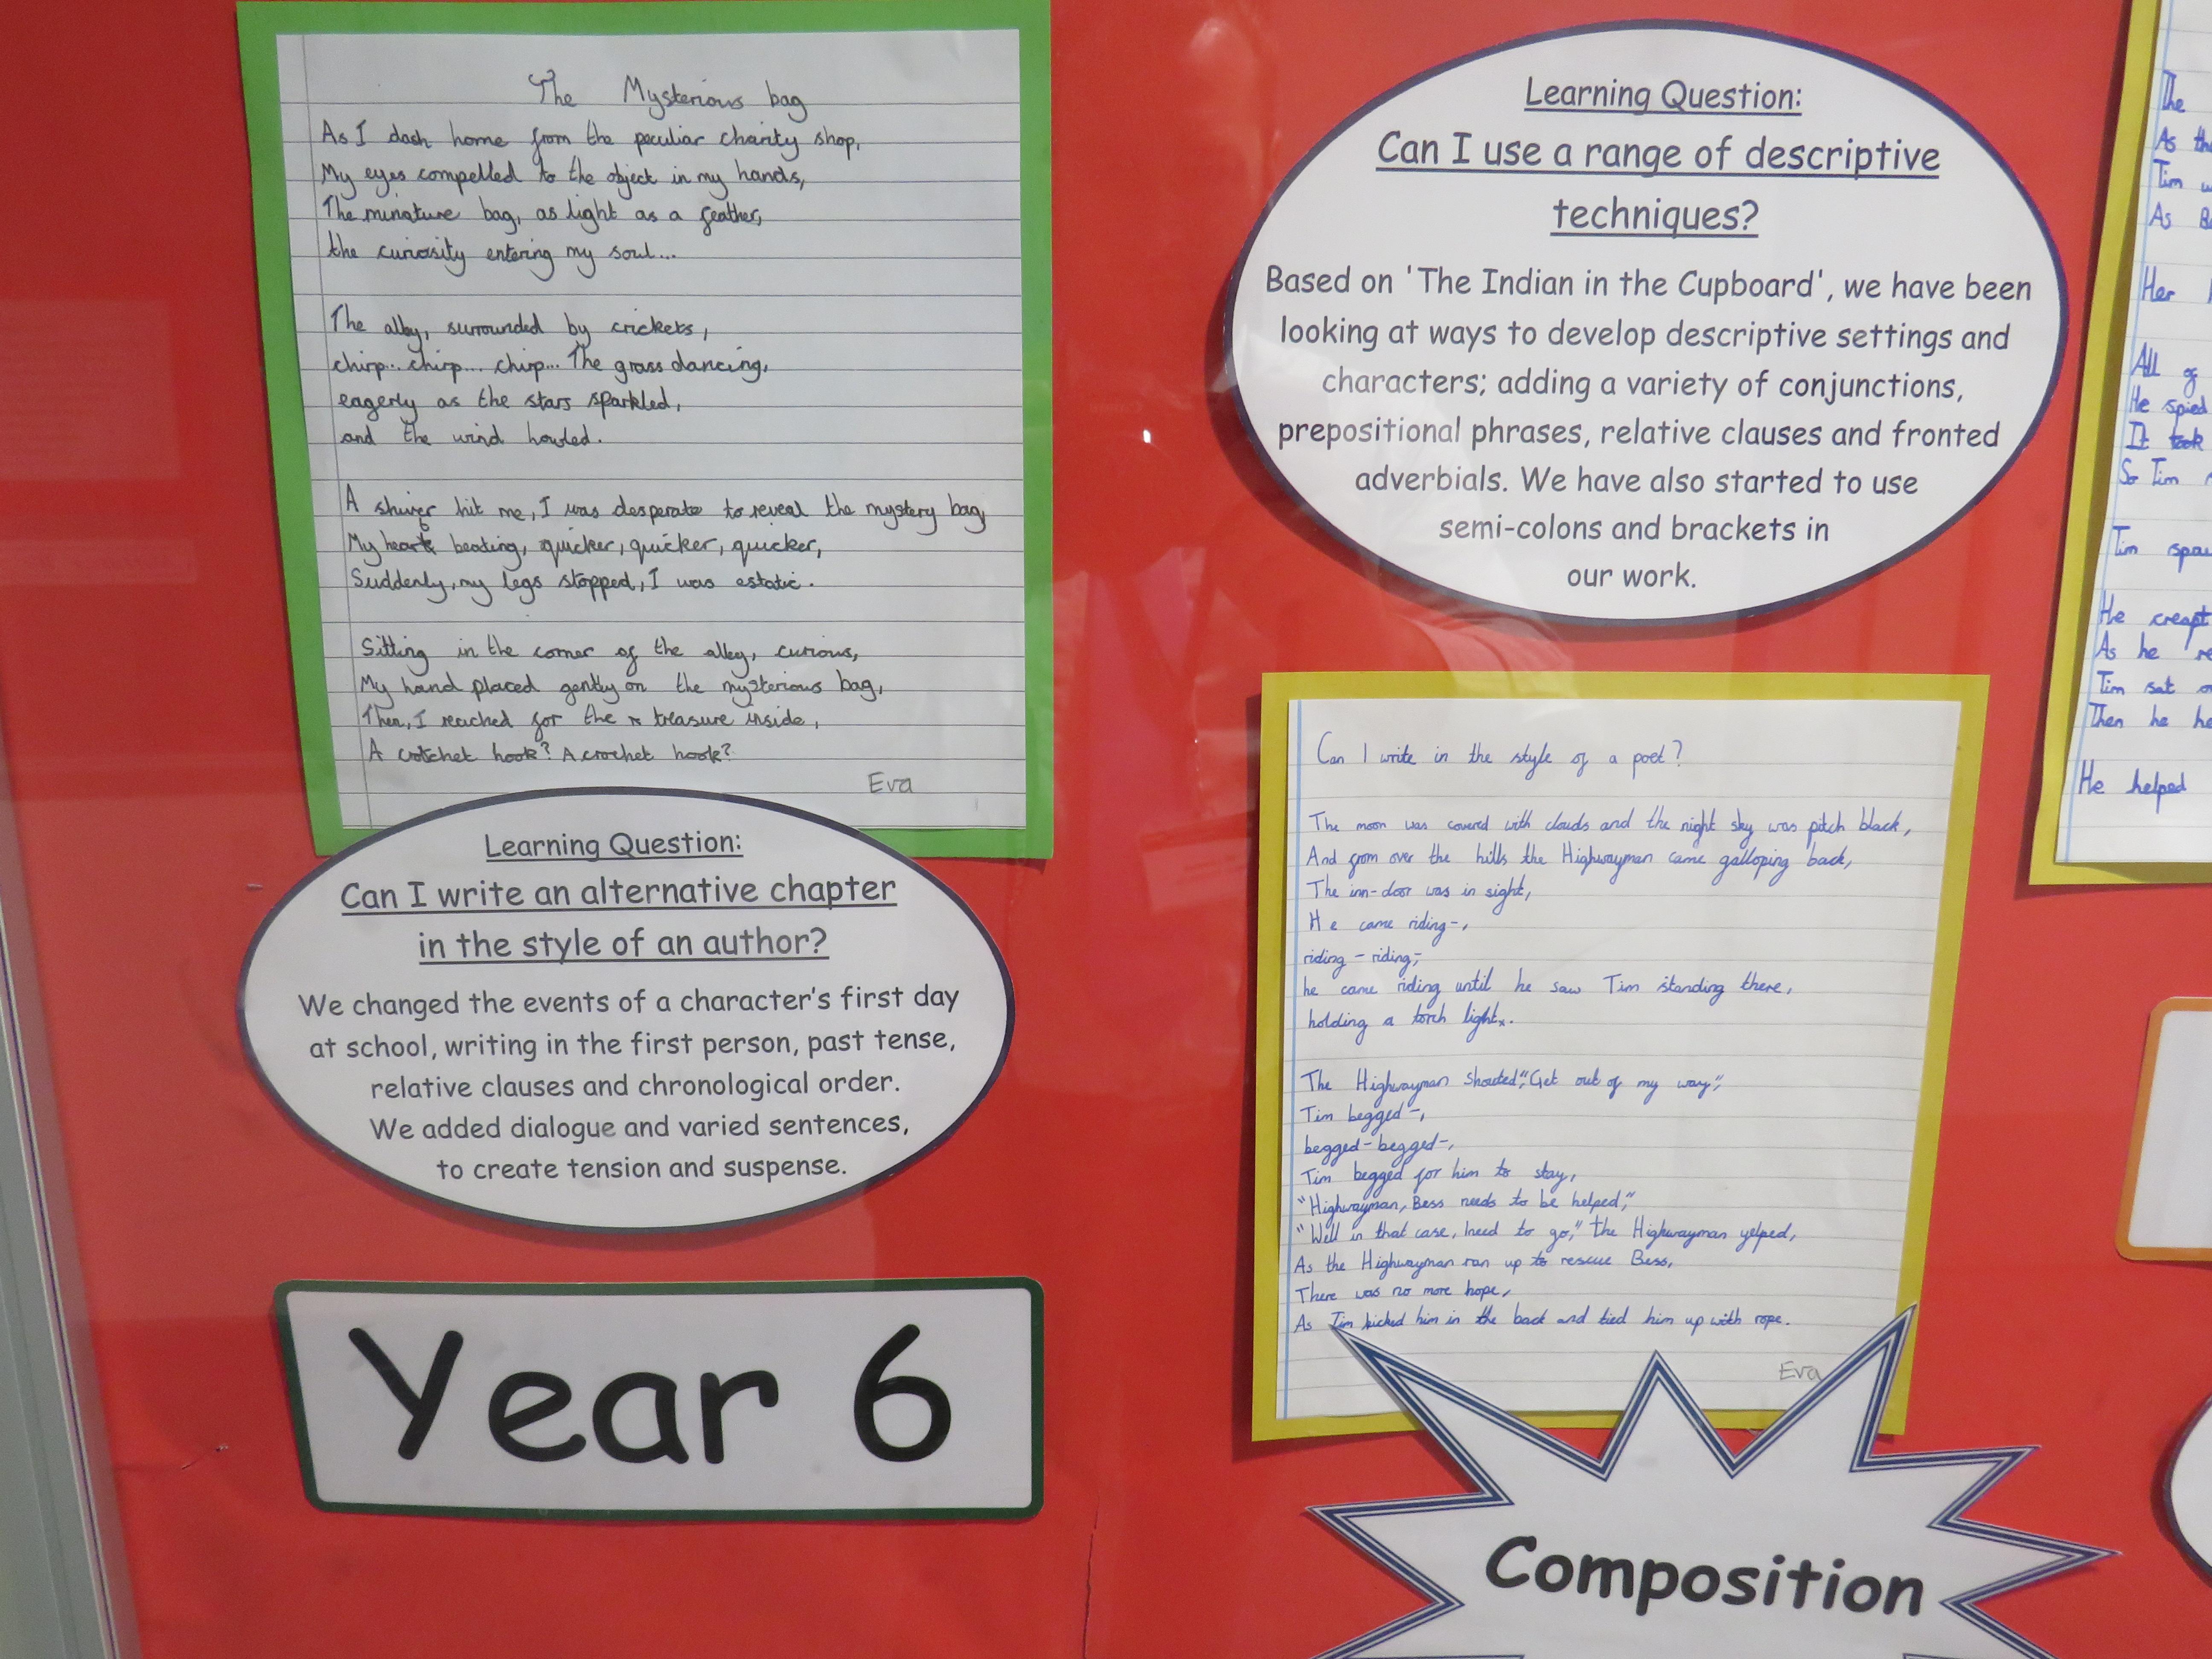 The Mysterious bag
As I dash home from the peculiar charity shop,
My eyes compelled to the object in my hands,
The minature bag, as light as a feather,
the curiosity entering my soul...
The alley, surrounded by crickets,
chirp... chirp... chirp... The grass dancing,
eagerly as the stars sparkled,
and the wind howled.
A shiver hit me, I was desperate to reveal the mystery bag,
My heart beating, quicker, quicker, quicker,
Suddenly, my legs stopped, I was estatic.
Sitting in the corner of the alley, curious,
My hand placed gently on the mysterious bag,
Then, I reached for the treasure inside,
A crotchet hook? A crochet hook?
Eva
Learning Question:
Can I write an alternative chapter
in the style of an author?
We changed the events of a character's first day
at school, writing in the first person, past tense,
relative clauses and chronological order.
We added dialogue and varied sentences,
to create tension and suspense.
Year 6
Learning Question:
Can I use a range of descriptive
techniques?
Based on 'The Indian in the Cupboard', we have been
looking at ways to develop descriptive settings and
characters; adding a variety of conjunctions,
prepositional phrases, relative clauses and fronted
adverbials. We have also started to use
semi-colons and brackets in
our work.
Can I write in the style of a poet?
The moon was covered with clouds and the night sky was pitch black,
And from over the hills the Highwayman came galloping back,
The inn-door was in sight,
He came riding-,
riding - riding-,
he came riding until he saw Tim standing there,
holding a torch light.
The Highwayman shouted,"Get out of my way,"
Tim begged-,
begged-begged-,
Tim begged for him to stay,
"Highwayman, Bess needs to be helped,"
"Well in that case, I need to go," the Highwayman yelped,
As the Highwayman ran up to rescue Bess,
There was no more hope,
As Tim kicked him in the back and tied him up with rope.
Eva
Composition
The
As
Tim
As
Her
All of
He spied
It took
So Tim
Tim
He creapt
As he
Tim sat
Then he
He helped